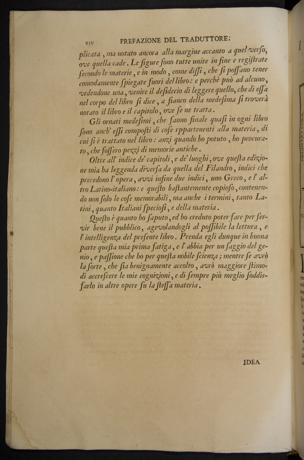 xiv PREFAZIONE DEL TRADUTTORE.
plicata, ma notato ancora alla margine accanto a quel verso,
ove quella cade. Le figure sono tutte unite in fine e registrate
secondo le materie, e in modo, come dissi, che si possano tener
comodamente spiegate fuori del libro: e perchè può ad alcuno,
vedendone una, venire il desiderio di leggere quello, che di essa
nel corpo del libro si dice, a fianco della medesima si troverà
notato il libro e il capitolo, ove se ne tratta.
Gli ornati medesimi, che fanno finale quasi in ogni libro
sono anch' essi composti di cose appartenenti alla materia, di
cui si è trattato nel libro: anzi quando ho potuto, ho procura-
to, che fossero pezzi di memorie antiche.
Oltre all' indice de' capitoli, e de' luoghi, ove questa edizio-
ne mia ha leggenda diversa da quella del Filandro, indici che
precedono l' opera, evvi infine due indici, uno Greco, e l' al-
tro Latino-italiano: e questo bastantemente copioso, contenen-
do non solo le cose memorabili, ma anche i termini, tanto La-
tini, quanto Italiani speciosi, e della materia.
Questo è quanto ho saputo, ed ho creduto poter fare per ser-
vir bene il pubblico, agevolandogli al possibile la lettura, e
l' intelligenza del presente libro. Prenda egli dunque in buona
parte questa mia prima fatiga, e l' abbia per un saggio del ge-
nio, e passione che ho per questa nobile scienza; mentre se avrò
la sorte, che sia benignamente accolto, avrò maggiore stimo-
lo di accrescere le mie cognizioni, e di sempre più meglio soddis-
farlo in altre opere su la stessa materia.
IDEA